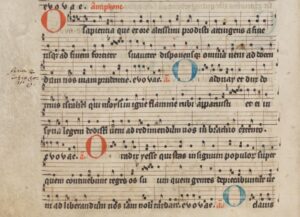 evovae. Antiphone
O sapientia que ex ore altissimi prodisti attingens a fine
usque ad finem fortiter suaviter disponensque omnia veni ad docen
dum nos viam prudentie. evovae. O Adonay et dux do
mus israhel qui moysi in igne flamme rubi apparuisti et ei in
syna legem dedisti veni ad redimendum nos in brachio extento.
evovae. O radix yesse qui stas in signum populorum super
quem continebunt reges os suum quem gentes deprecabuntur ve
ni ad liberandum nos iam noli tardare. evovae. O clavis